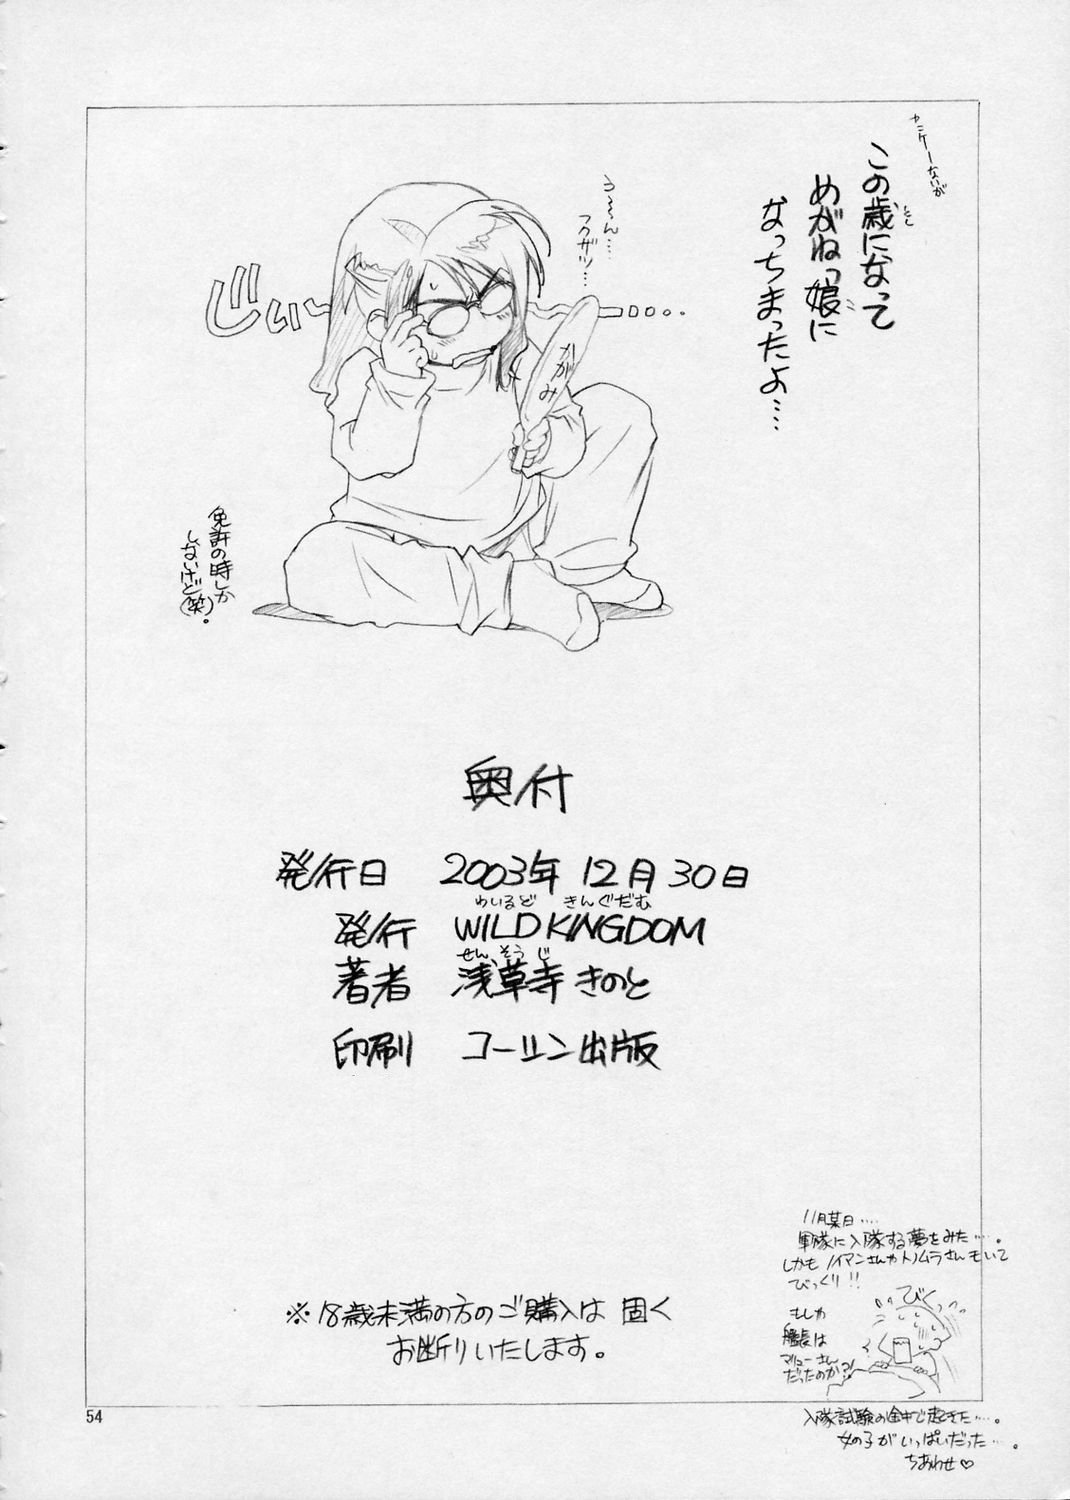 この歳になって
とし
めがねっ娘に
こ
なっちまったよ…
うーん…
フクザツ…
じぃ〜
かがみ
免許の時しか
しないけど(笑)。
奥付
発行日 2003年 12月 30日
わいるど きんぐだむ
発行 WILD KINGDOM
せんそうじ
著者 浅草寺きのと
印刷 コーシン出版
※18歳未満の方のご購入は 固く
お断りいたします。
11月某日‥‥
軍隊に入隊する夢をみた…。
しかもノイマンさんやトノムラさんもいて
びっくり!!
びくっ
もしか
艦長は
マリューさん
だったのか?!
54
入隊試験の途中で起きた…。
女の子がいっぱいだった…。
ちあわせ♡